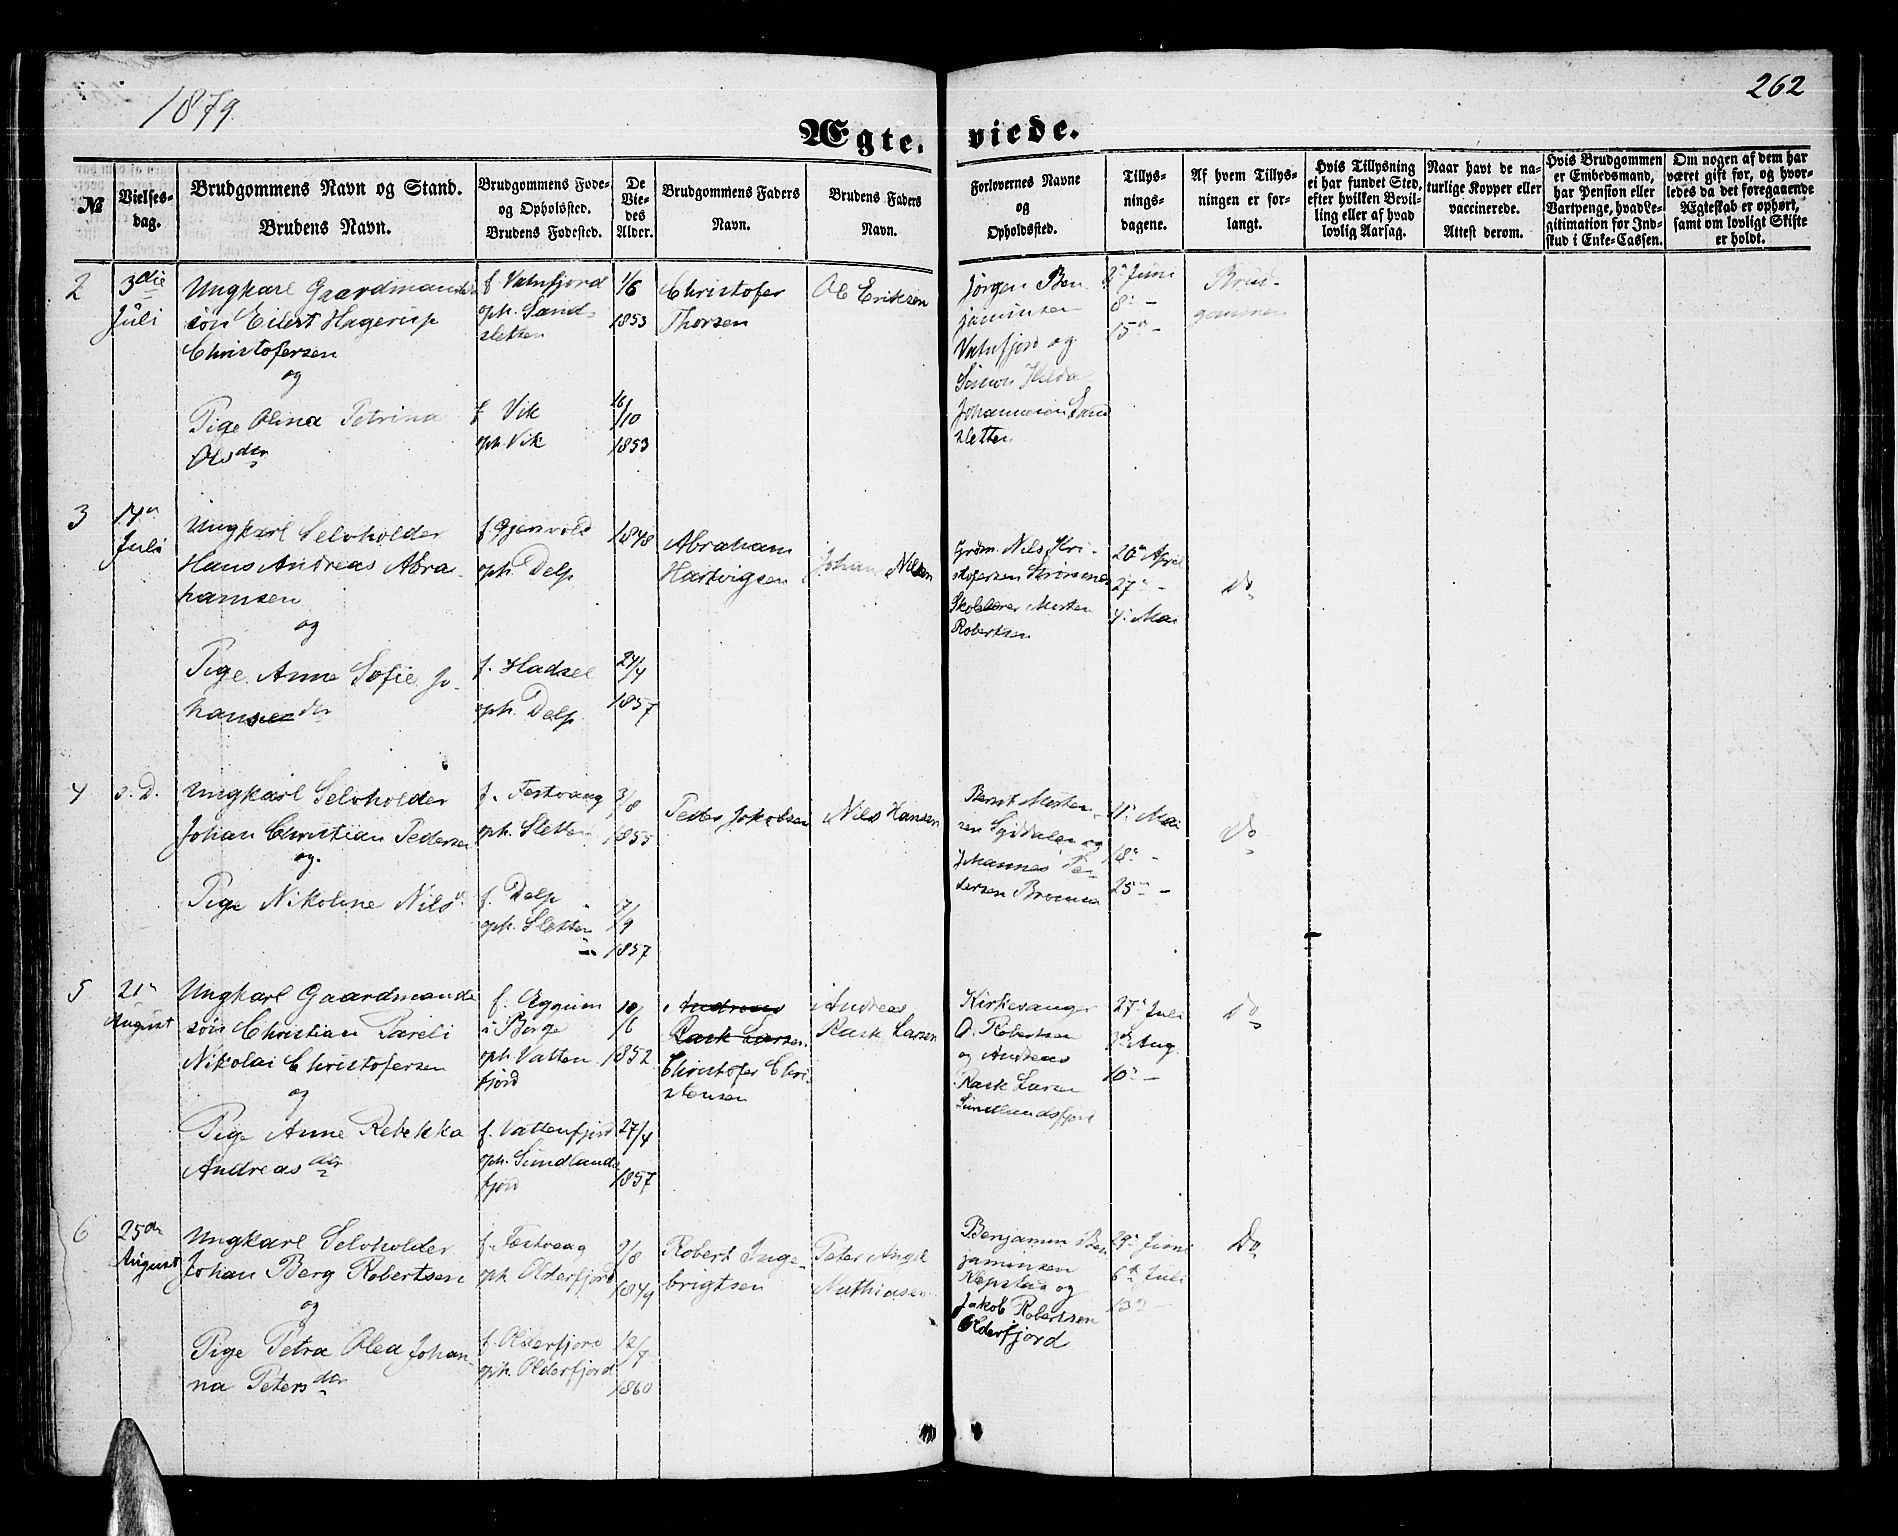 1879
262
Ægte- viede.
№
Vielses-
dag.
Brudgommens Navn og Stand.
Brudens Navn.
Brudgommens Føde-
og Opholdsted.
Brudens Fødested.
De
Vie-
des
Alder.
Brudgommens Faders
Navn.
Brudens Faders
Navn.
Forlovernes Navne
og
Opholdssted.
Tillys-
nings-
dagene.
Af hvem Tillys-
ningen er for-
langt.
Hvis Tillysning
ei har fundet Sted,
efter hvilken Bevil-
ling eller af hvad
lovlig Aarsag.
Naar havt de na-
turlige Kopper eller
vaccinerede.
Attest derom.
Hvis Brudgommen
er Embedsmand,
har Pension eller
Vartpenge, hvad Le-
gitimation for Ind-
skud i Enke-Cassen.
Om nogen af dem har
været gift før, og hvor-
ledes da det foregaaende
Ægteskab er ophørt,
samt om lovligt Skifte
er holdt.
2
3die
Juli
Ungkarl Gaardmands
søn Eilert Hagerup
Christofersen
og
Pige Olina Petrina
Olsdtr
f Vatnfjord
oph. Sand-
sletten
f Vik
oph. Vik
1/6
1853
16/10
1853
Christofer
Thorsen
Ole Eriksen
Jørgen Ben
jaminsen
Vatnfjord og
Johannesen Sand
sletten
1n Juni
8n —
15n —
Brud-
gommen
3
14n
Juli
Ungkarl Selvholder
Hans Andreas Abra-
hamsen
og
Pige Anne Sofie Jo-
hansedtr
f Gjersvold
oph. Delp
f. Hadsel
oph. Delp
1848
24/4
1857
Abraham
Hartvigsen
Johan Nilsen
Grdm. Nils Kri-
stofersen Strømnes
Skolelærer Morten
Robertsen
20n April
27n —
4n Mai
Do
4
s. D.
Ungkarl Selvholder
Johan Christian Pedersen
og
Pige Nikoline Nilsd
f. Festvaag
oph. Sletten
f. Delp
oph. Sletten
3/8
1855
7/9
1857
Peder Jakobsen
Nils Hansen
Bernt Morten-
sen Sydalen og
Johannes Pe-
dersen Brenna
11n Mai
18n —
25n —
Do
5
21n
August
Ungkarl Gaardmands
søn Christian Pareli
Nikolai Christofersen
og
Pige Anne Rebekka
Andreasdtr
f. Eggum
i Borge
oph Vatten
fjord
f. Vattenfjord
oph. Sundlands
fjord
10/6
1852
27/4
1857
Andreas
Rask Larsen
Christofer Chri-
stensen
Andreas
Rask Larsen
Kirkesanger
O. Robertsen
og Andreas
Rask Larsen
Sundlandsfjord
27n Juli
3de Aug.
10n —
Do
6
25de
August
Ungkarl Selvholder
Johan Berg Robertsen
og
Pige Petra Olea Johan-
na Petersdtr
f. Festvaag
oph Olderfjord
f. Olderfjord
oph. Olderfjord
9/8
1849
12/7
1860
Robert Inge-
brigtsen
Peter Angel
Mathiasen
Benjamin Ben
jaminsen
Kepstad og
Jakob Robertsen
Olderfjord
29n Juni
6te Juli
13n —
Do